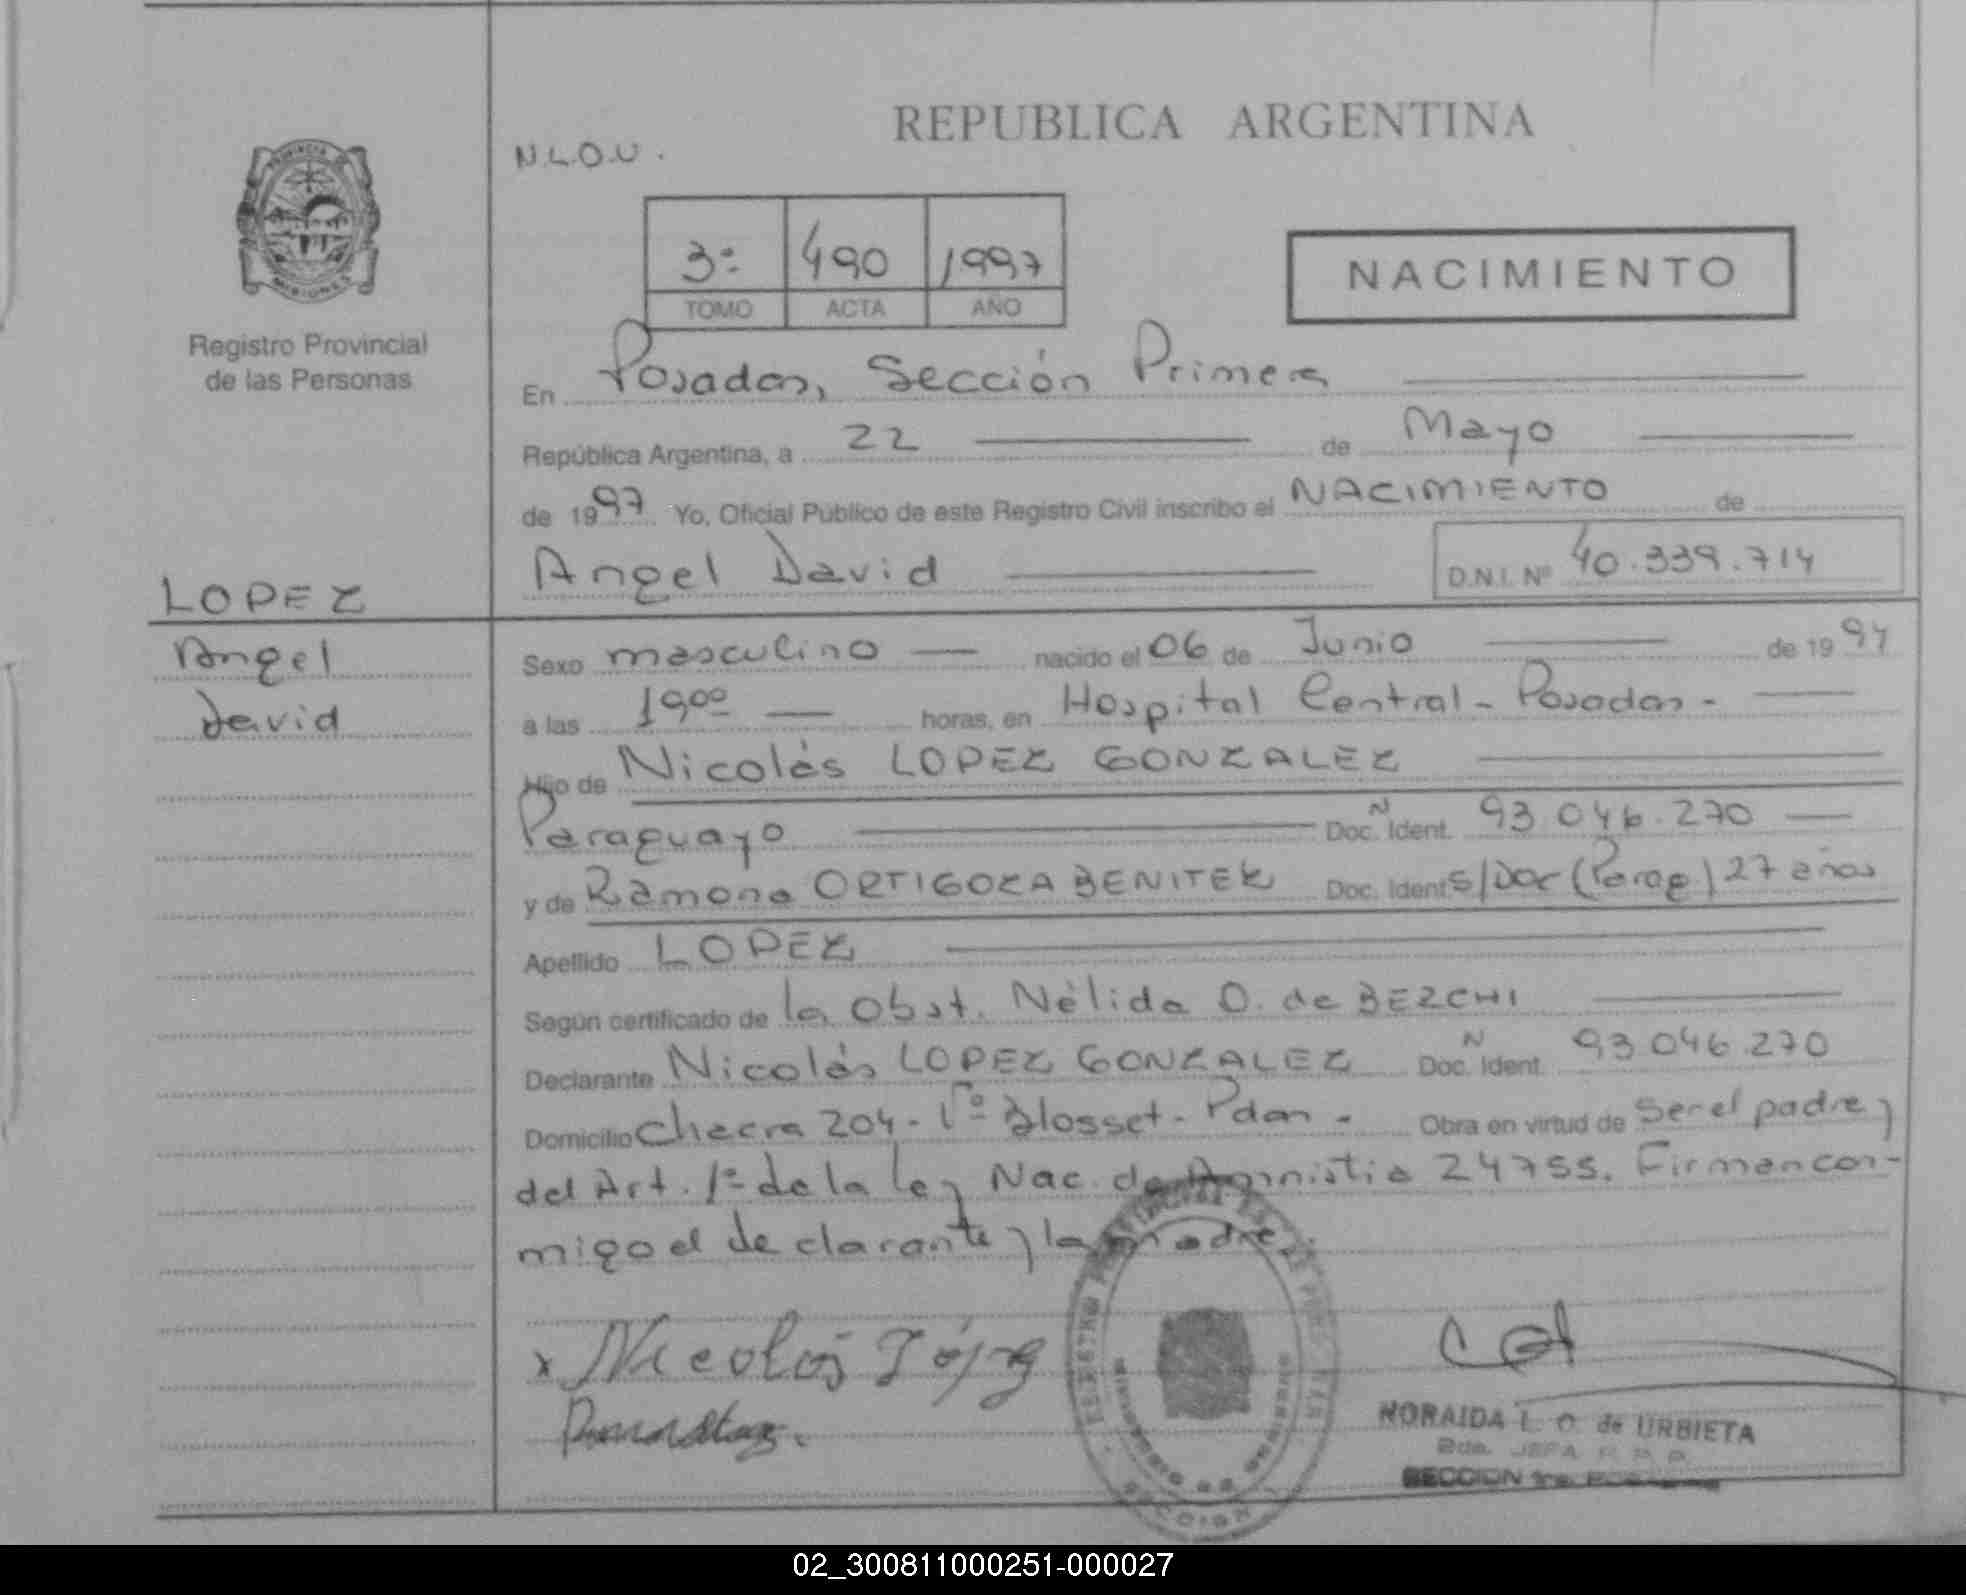 REPUBLICA ARGENTINA
N.L.O.U.
PROVINCIA DE
MISIONES
Registro Provincial
de las Personas
3º 490 1997
TOMO ACTA AÑO
NACIMIENTO
En Posadas, Sección Primera
República Argentina, a 22 de Mayo
de 1997 Yo, Oficial Público de este Registro Civil inscribo el NACIMIENTO de
Angel David D.N.I. Nº 40.339.714
LOPEZ
Angel
David
Sexo masculino nacido el 06 de Junio de 1994
a las 19,00 horas, en Hospital Central - Posadas -
Hijo de Nicolás LOPEZ GONZALEZ
Paraguayo Doc. Ident. N 93.046.270
y de Ramona ORTIGOZA BENITEZ Doc. Ident. S/Doc (Parag) 27 años
Apellido LOPEZ
Según certificado de la Obst. Nélida O. de BEZCHI
Declarante Nicolás LOPEZ GONZALEZ Doc. Ident. N 93.046.270
Domicilio Chacra 204 - Vº Blosset - Pdas - Obra en virtud de Ser el padre y
del Art. 1º de la ley Nac. de Amnistia 24755. Firman con-
migo el declarante y la madre.
x Nicolás López
NORAIDA L. O. de URBIETA
2da. JEFA R. P. P.
SECCION 1ra.
SECCION
02_300811000251-000027